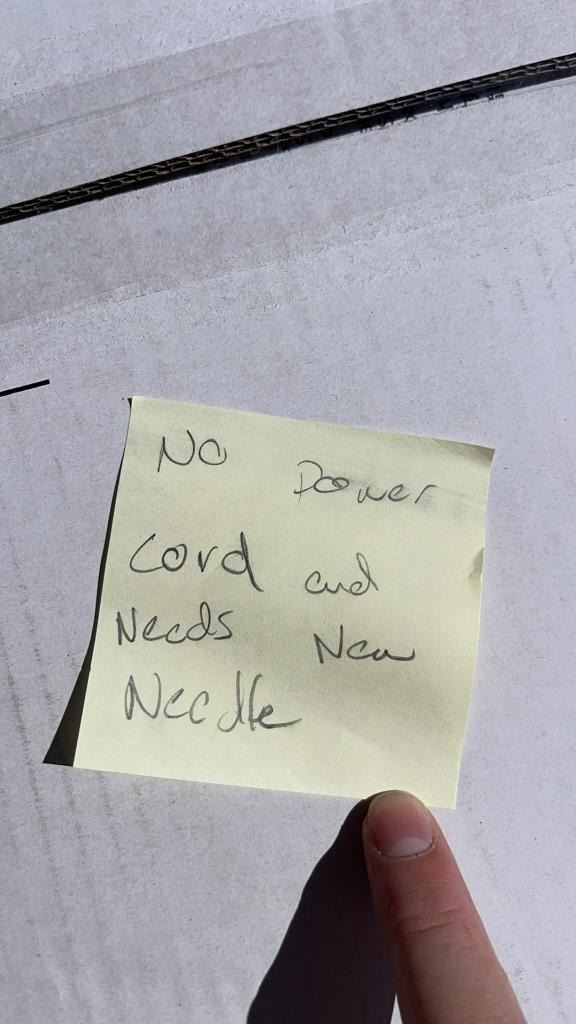 No Power
Cord and
Needs New
Needle